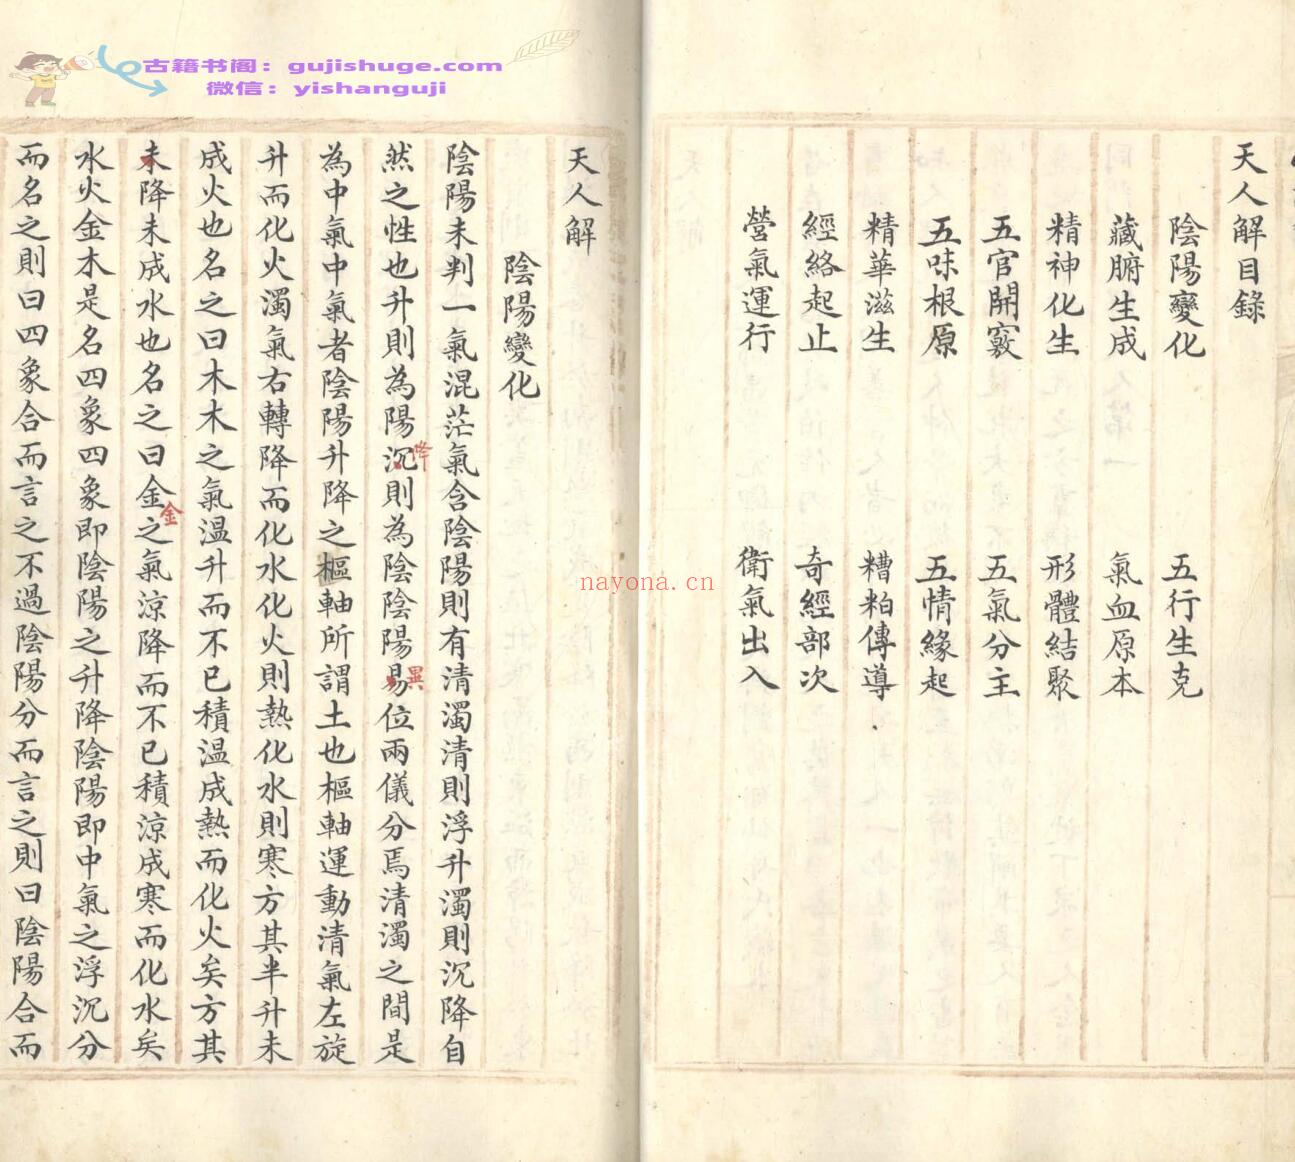 古籍书阁：gujishuge.com
微信：yishanguji
天人解目錄
陰陽變化 五行生克
藏腑生成 氣血原本
精神化生 形體結聚
五官開竅 五氣分主
五味根原 五情緣起
精華滋生 糟粕傳導
經絡起止 奇經部次
營氣運行 衛氣出入
天人解
陰陽變化
陰陽未判一氣混茫氣含陰陽則有清濁清則浮升濁則沉降自
然之性也升則為陽沉降則為陰陰陽易異位兩儀分焉清濁之間是
為中氣中氣者陰陽升降之樞軸所謂土也樞軸運動清氣左旋
升而化火濁氣右轉降而化水化火則熱化水則寒方其半升未
成火也名之曰木木之氣溫升而不已積溫成熱而化火矣方其
未降未成水也名之曰金金之氣涼降而不已積涼成寒而化水矣
水火金木是名四象四象即陰陽之升降陰陽即中氣之浮沉分
而名之則曰四象合而言之不過陰陽分而言之則曰陰陽合而
nayona.cn